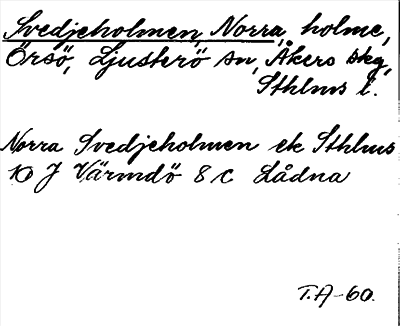 Svedjeholmen, Norra, holme,
Örsö, Ljusterö sn, Åkers skg,
Sthlms l.
Norra Svedjeholmen ek Sthlms
10 J Värmdö 8 c Lådna
T.A-60.